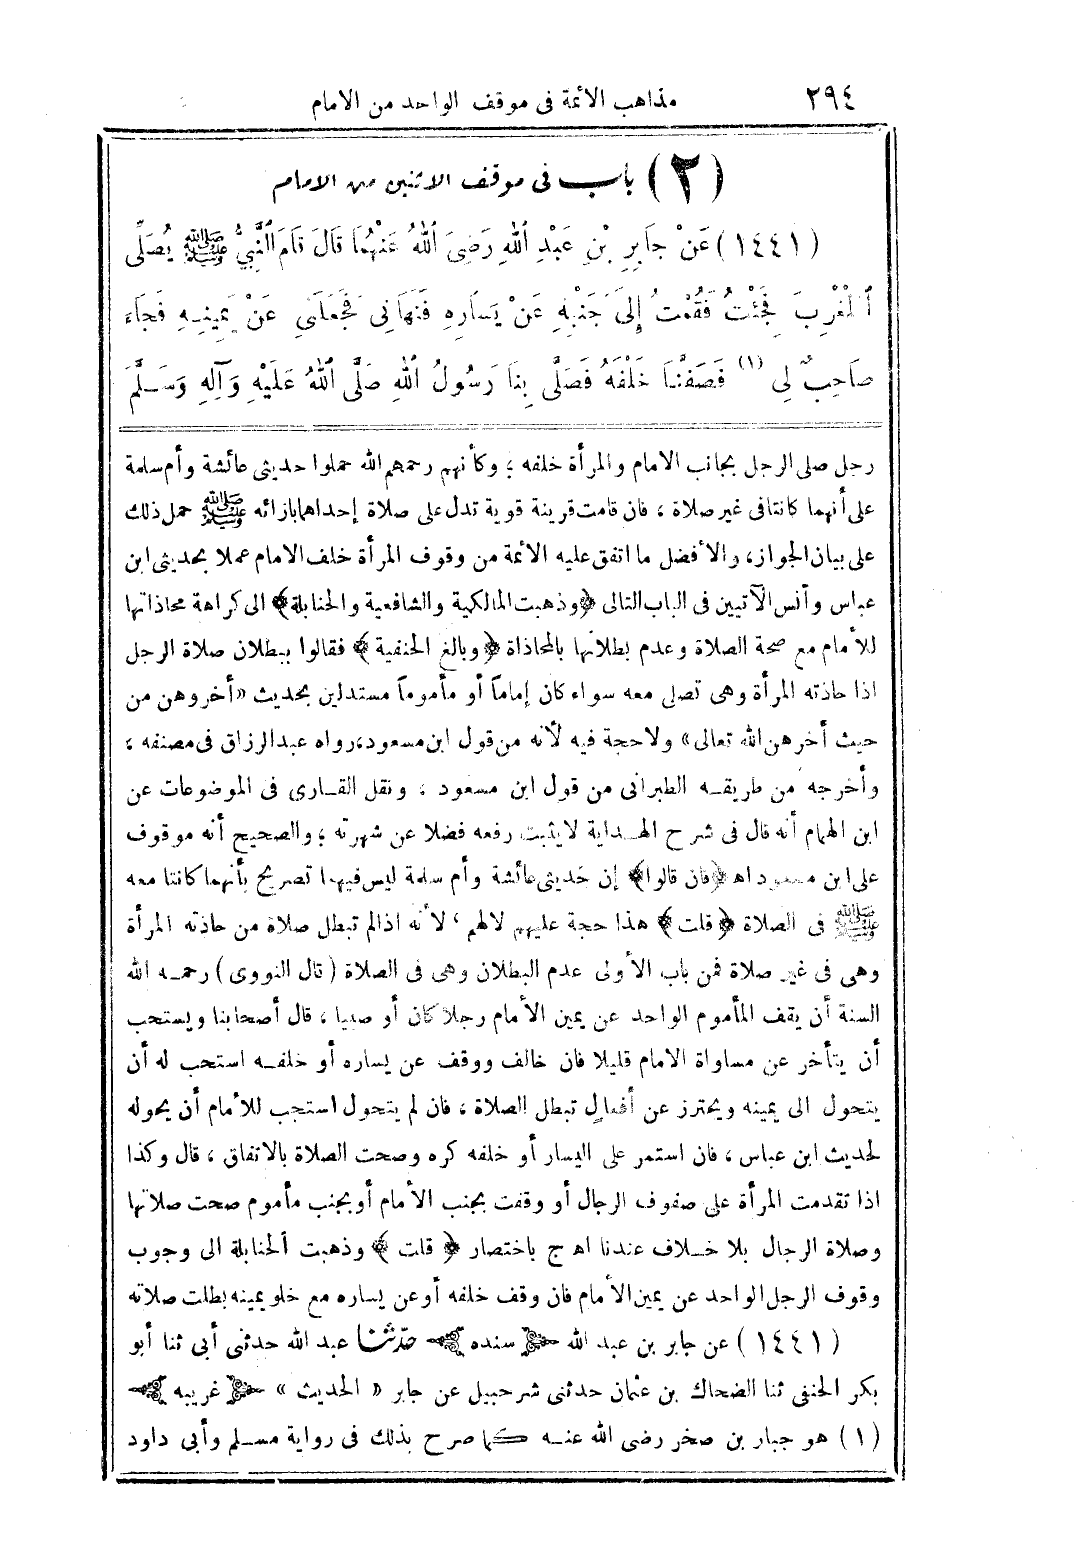 ٢٩٤ مذاهب الأئمة فى موقف الواحد من الامام
(٢) باب فى موقف الاثنين من الامام
(١٤٤١) عَنْ جَابِرِ بْنِ عَبْدِ اللهِ رَضِىَ اللهُ عَنْهُمَا قَالَ قَامَ النَّبِىُّ ﷺ يُصَلِّى
الْمَغْرِبَ فَجِئْتُ فَقُمْتُ إِلَى جَنْبِهِ عَنْ يَسَارِهِ فَنَهَانِى فَجَعَلَنِى عَنْ يَمِينِهِ فَجَاءَ
صَاحِبٌ لِى (١) فَصَفَفْنَا خَلْفَهُ فَصَلَّى بِنَا رَسُولُ اللهِ صَلَّى اللهُ عَلَيْهِ وَآلِهِ وَسَلَّمَ
رجل صلى الرجل بجانب الامام والمرأة خلفه ؛ وكأنهم رحمهم الله حملوا حديثى عائشة وأم سلمة
على أنهما كانتا فى غير صلاة ، فان قامت قرينة قوية تدل على صلاة إحداهما بازائه ﷺ حمل ذلك
على بيان الجواز، والأفضل ما اتفق عليه الأئمة من وقوف المرأة خلف الامام عملا بحديثى ابن
عباس وأنس الآتيين فى الباب التالى ﴿وذهبت المالكية والشافعية والحنابلة﴾ الى كراهة محاذاتها
للأمام مع صحة الصلاة وعدم بطلانها بالمحاذاة ﴿وبالغ الحنفية﴾ فقالوا ببطلان صلاة الرجل
اذا حاذته المرأة وهى تصلى معه سواء كان إماماً أو مأموماً مستدلين بحديث «أخروهن من
حيث أخرهن الله تعالى» ولاحجة فيه لأنه من قول ابن مسعود،رواه عبدالرزاق فى مصنفه ،
وأخرجه من طريقه الطبرانى من قول ابن مسعود ، ونقل القارى فى الموضوعات عن
ابن الهمام أنه قال فى شرح الهداية لايثبت رفعه فضلا عن شهرته ؛ والصحيح أنه موقوف
على ابن مسعود اه ﴿فان قالوا﴾ إن حديثى عائشة وأم سلمة ليس فيهما تصريح بأنهما كانتا معه
ﷺ فى الصلاة ﴿قلت﴾ هذا حجة عليهم لالهم ، لأنه اذالم تبطل صلاة من حاذته المرأة
وهى فى غير صلاة فمن باب الأولى عدم البطلان وهى فى الصلاة (قال النووى) رحمه الله
السنة أن يقف المأموم الواحد عن يمين الأمام رجلا كان أو صبيا ، قال أصحابنا ويستحب
أن يتأخر عن مساواة الامام قليلا فان خالف ووقف عن يساره أو خلفه استحب له أن
يتحول الى يمينه ويحترز عن أفعال تبطل الصلاة ، فان لم يتحول استحب للأمام أن يحوله
لحديث ابن عباس ، فان استمر على اليسار أو خلفه كره وصحت الصلاة بالاتفاق ، قال وكذا
اذا تقدمت المرأة على صفوف الرجال أو وقفت بجنب الأمام أوبجنب مأموم صحت صلاتها
وصلاة الرجال بلا خلاف عندنا اه ج باختصار ﴿قلت﴾ وذهبت الحنابلة الى وجوب
وقوف الرجل الواحد عن يمين الأمام فان وقف خلفه أو عن يساره مع خلو يمينه بطلت صلاته
(١٤٤١) عن جابر بن عبد الله ﴿سنده﴾ حدّثنا عبد الله حدثنى أبى ثنا أبو
بكر الحنفى ثنا الضحاك بن عثمان حدثنى شرحبيل عن جابر « الحديث » ﴿غريبه﴾
(١) هو جبار بن صخر رضى الله عنه كما صرح بذلك فى رواية مسلم وأبى داود